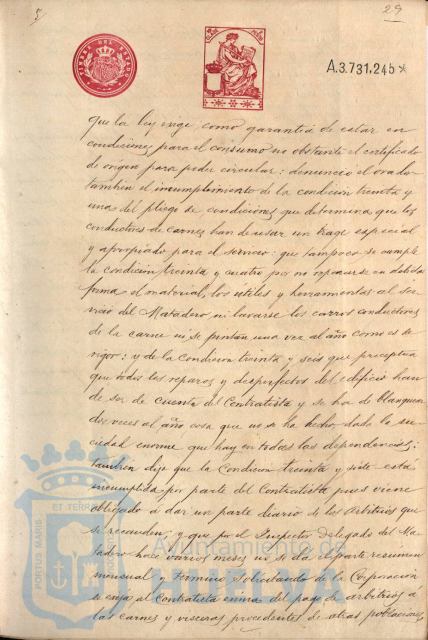 29
A.3.731.245
TIMBRE DEL ESTADO
que la ley exige como garantia de estar en
condiciones para el consumo no obstante el certificado
de origen para poder circular: denunció el orador
tambien el incumplimiento de la condición treinta y
una del pliego de condiciones que determina que los
conductores de carnes han de usar un trage especial
y apropiado para el servicio: que tampoco se cumple
la condición treinta y cuatro por no reponerse en debida
forma el material, los utiles y herramientas al ser-
vicio del Matadero, ni lavarse los carros conductores
de la carne ni se pintan una vez al año como es de
rigor: y de la condición treinta y seis que preceptua
que todos los reparos y desperfectos del edificio han
de ser de cuenta del Contratista y se ha de blanquear
dos veces al año cosa que no se ha hecho, dada la su-
ciedad enorme que hay en todas las dependencias;
tambien dijo que la Condición treinta y siete está
incumplida por parte del Contratista pues viene
obligado á dar un parte diario de los Arbitrios que
se recauden, y que por el Inspector delegado del Ma-
tadero hace varios meses no se dá el parte resumen
mensual y terminó solicitando de la Corporación
se exija al Contratista encima del pago de arbitrios á
las carnes y visceras procedentes de otras poblaciones,
PORTUS MARIS
ET TERRAE
Ayuntamiento de
HUELVA